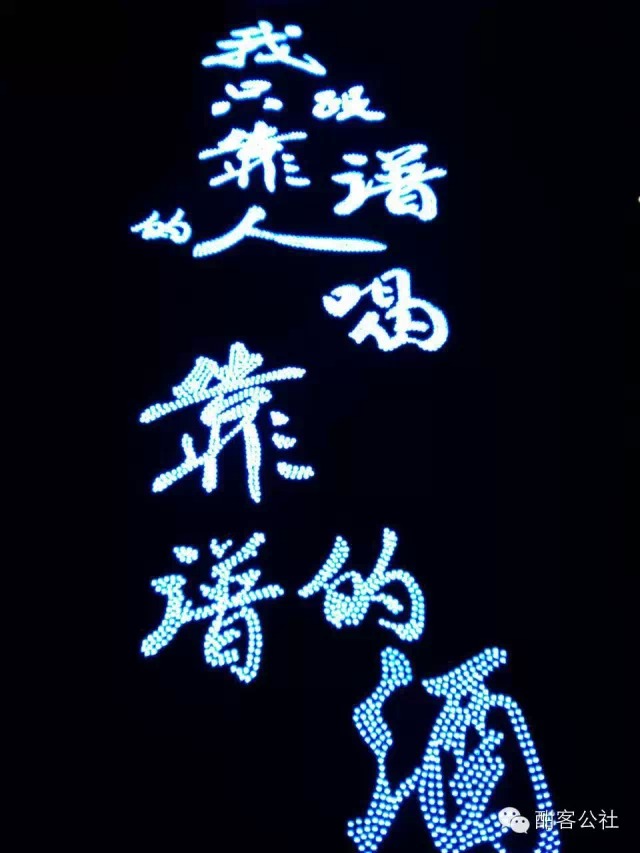 我
只跟
靠谱
的人
喝
靠
谱的
酒
酣客公社